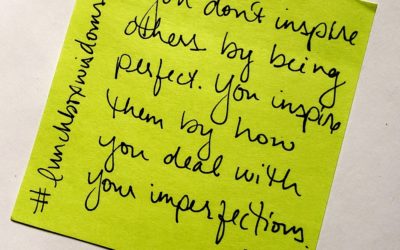 you don't inspire
others by being
perfect. You inspire
them by how
you deal with
your imperfections.
#lunchboxwisdoms